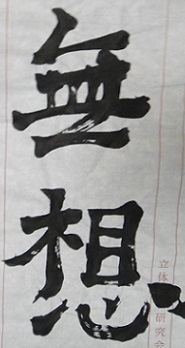 無想
立体 研究会